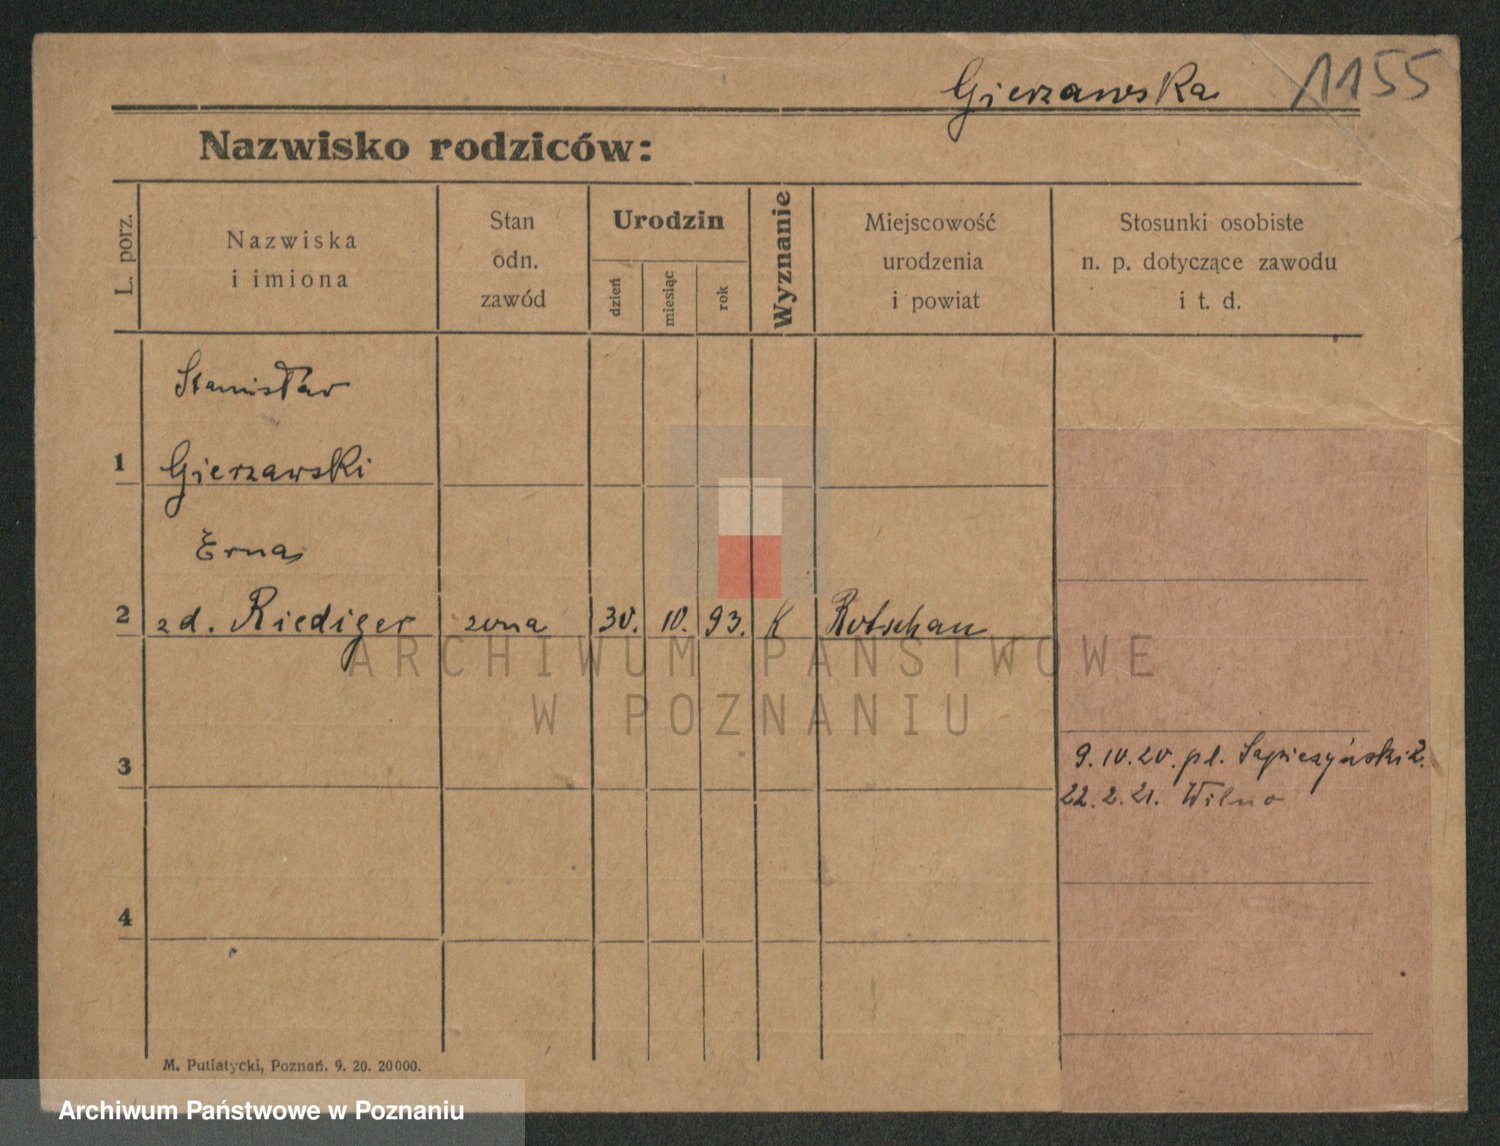 Gierzawska 1155
Nazwisko rodziców:
L. porz.
Nazwiska
i imiona
Stan
odn.
zawód
Urodzin
dzień
miesiąc
rok
Wyznanie
Miejscowość
urodzenia
i powiat
Stosunki osobiste
n. p. dotyczące zawodu
i t. d.
Stanisław
1 Gierzawski
Erna
2 zd. Riediger zona 30. 10. 93. K Rotschau
ARCHIWUM PAŃSTWOWE
W POZNANIU
3
9.10.20. pl. Sapieżyński 2.
22.2.21. Wilno
4
M. Putiatycki, Poznań. 9. 20. 20000.
Archiwum Państwowe w Poznaniu